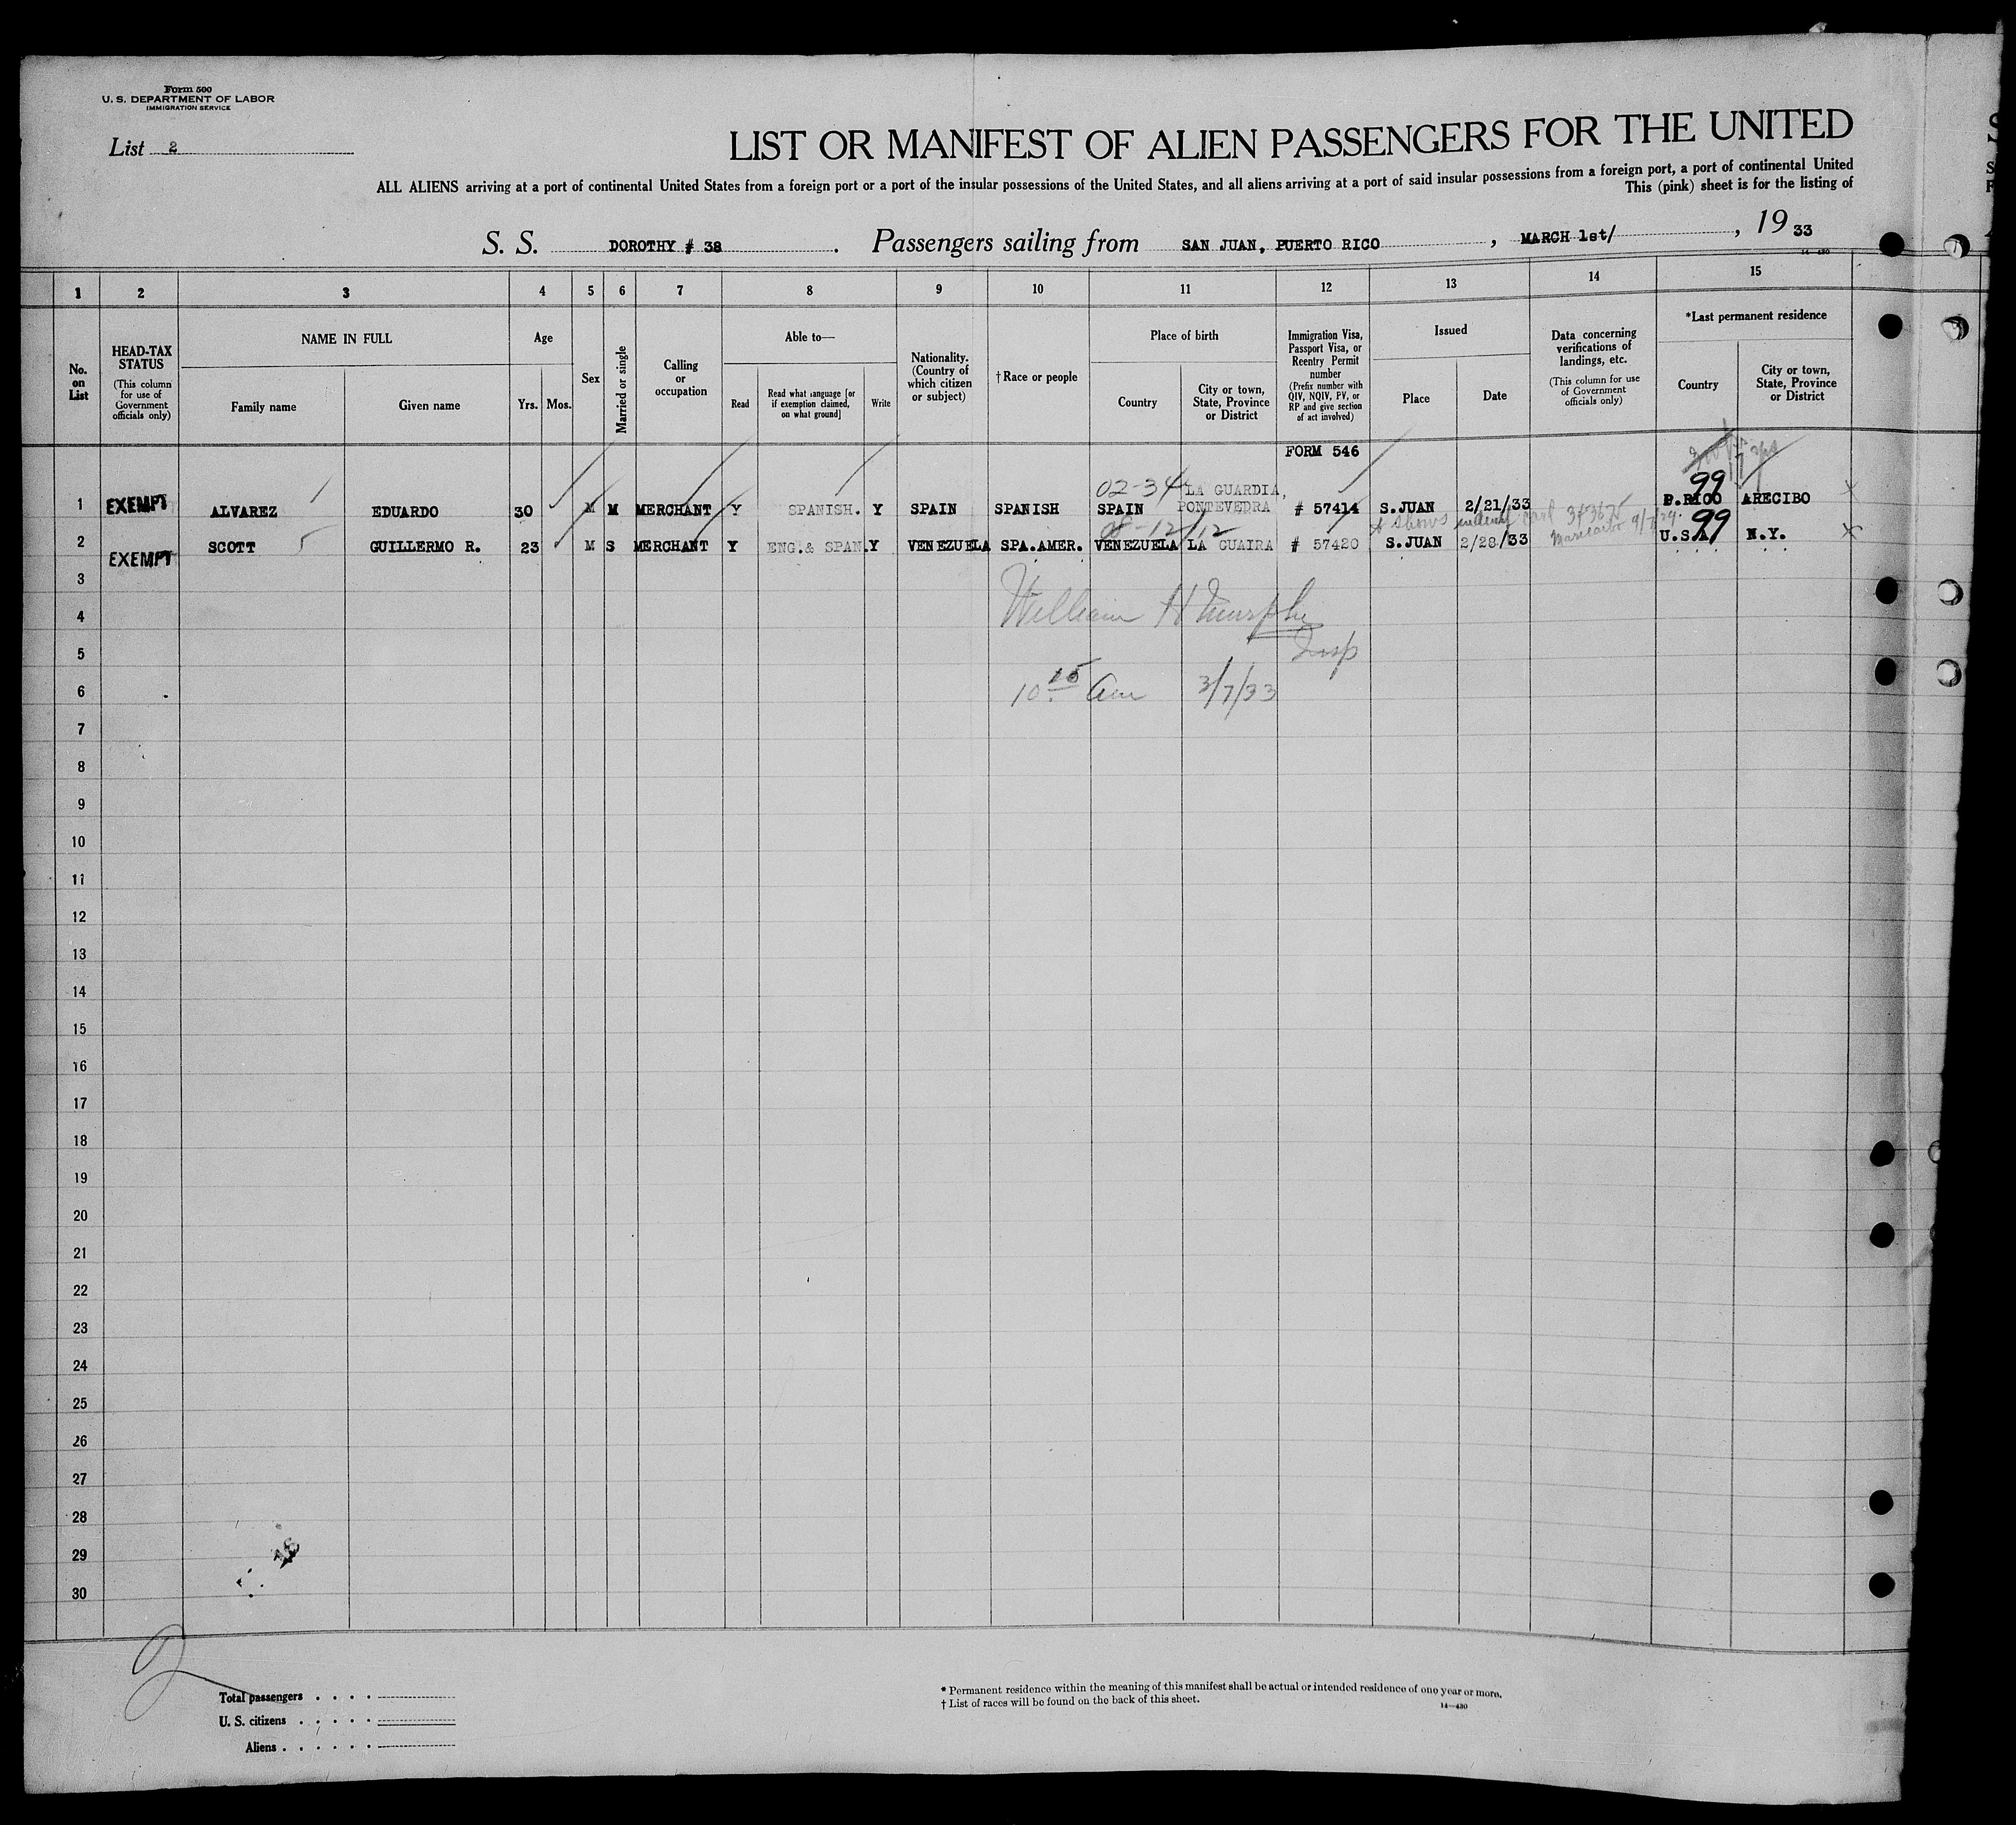 Form 500
U. S. DEPARTMENT OF LABOR
IMMIGRATION SERVICE
List 2
LIST OR MANIFEST OF ALIEN PASSENGERS FOR THE UNITED
ALL ALIENS arriving at a port of continental United States from a foreign port or a port of the insular possessions of the United States, and all aliens arriving at a port of said insular possessions from a foreign port, a port of continental United
This (pink) sheet is for the listing of
S. S. DOROTHY # 38. Passengers sailing from SAN JUAN, PUERTO RICO, MARCH 1st/, 19 33
14—430
1 2 3 4 5 6 7 8 9 10 11 12 13 14 15
No. on List
HEAD-TAX STATUS
(This column for use of Government officials only)
NAME IN FULL
Family name
Given name
Age
Yrs.
Mos.
Sex
Married or single
Calling or occupation
Able to—
Read
Read what language [or if exemption claimed, on what ground]
Write
Nationality. (Country of which citizen or subject)
†Race or people
Place of birth
Country
City or town, State, Province or District
Immigration Visa, Passport Visa, or Reentry Permit number
(Prefix number with QIV, NQIV, PV, or RP and give section of act involved)
Issued
Place
Date
Data concerning verifications of landings, etc.
(This column for use of Government officials only)
*Last permanent residence
Country
City or town, State, Province or District
FORM 546
02-34 LA GUARDIA, 99
1 EXEMPT ALVAREZ EDUARDO 30 M M MERCHANT Y SPANISH. Y SPAIN SPANISH SPAIN PONTEVEDRA # 57414 S.JUAN 2/21/33 P.RICO ARECIBO X
08-12/12 shows 99
2 EXEMPT SCOTT GUILLERMO R. 23 M S MERCHANT Y ENG.& SPAN. Y VENEZUELA SPA.AMER. VENEZUELA LA GUAIRA # 57420 S.JUAN 2/28/33 U.S.A. N.Y. X
3
4 William H Murphy
5 Insp
6 10 15 am 3/7/33
7
8
9
10
11
12
13
14
15
16
17
18
19
20
21
22
23
24
25
26
27
28
29
30
2
Total passengers . . . .
U. S. citizens . . . . .
Aliens . . . . . .
* Permanent residence within the meaning of this manifest shall be actual or intended residence of one year or more.
† List of races will be found on the back of this sheet.
14—430